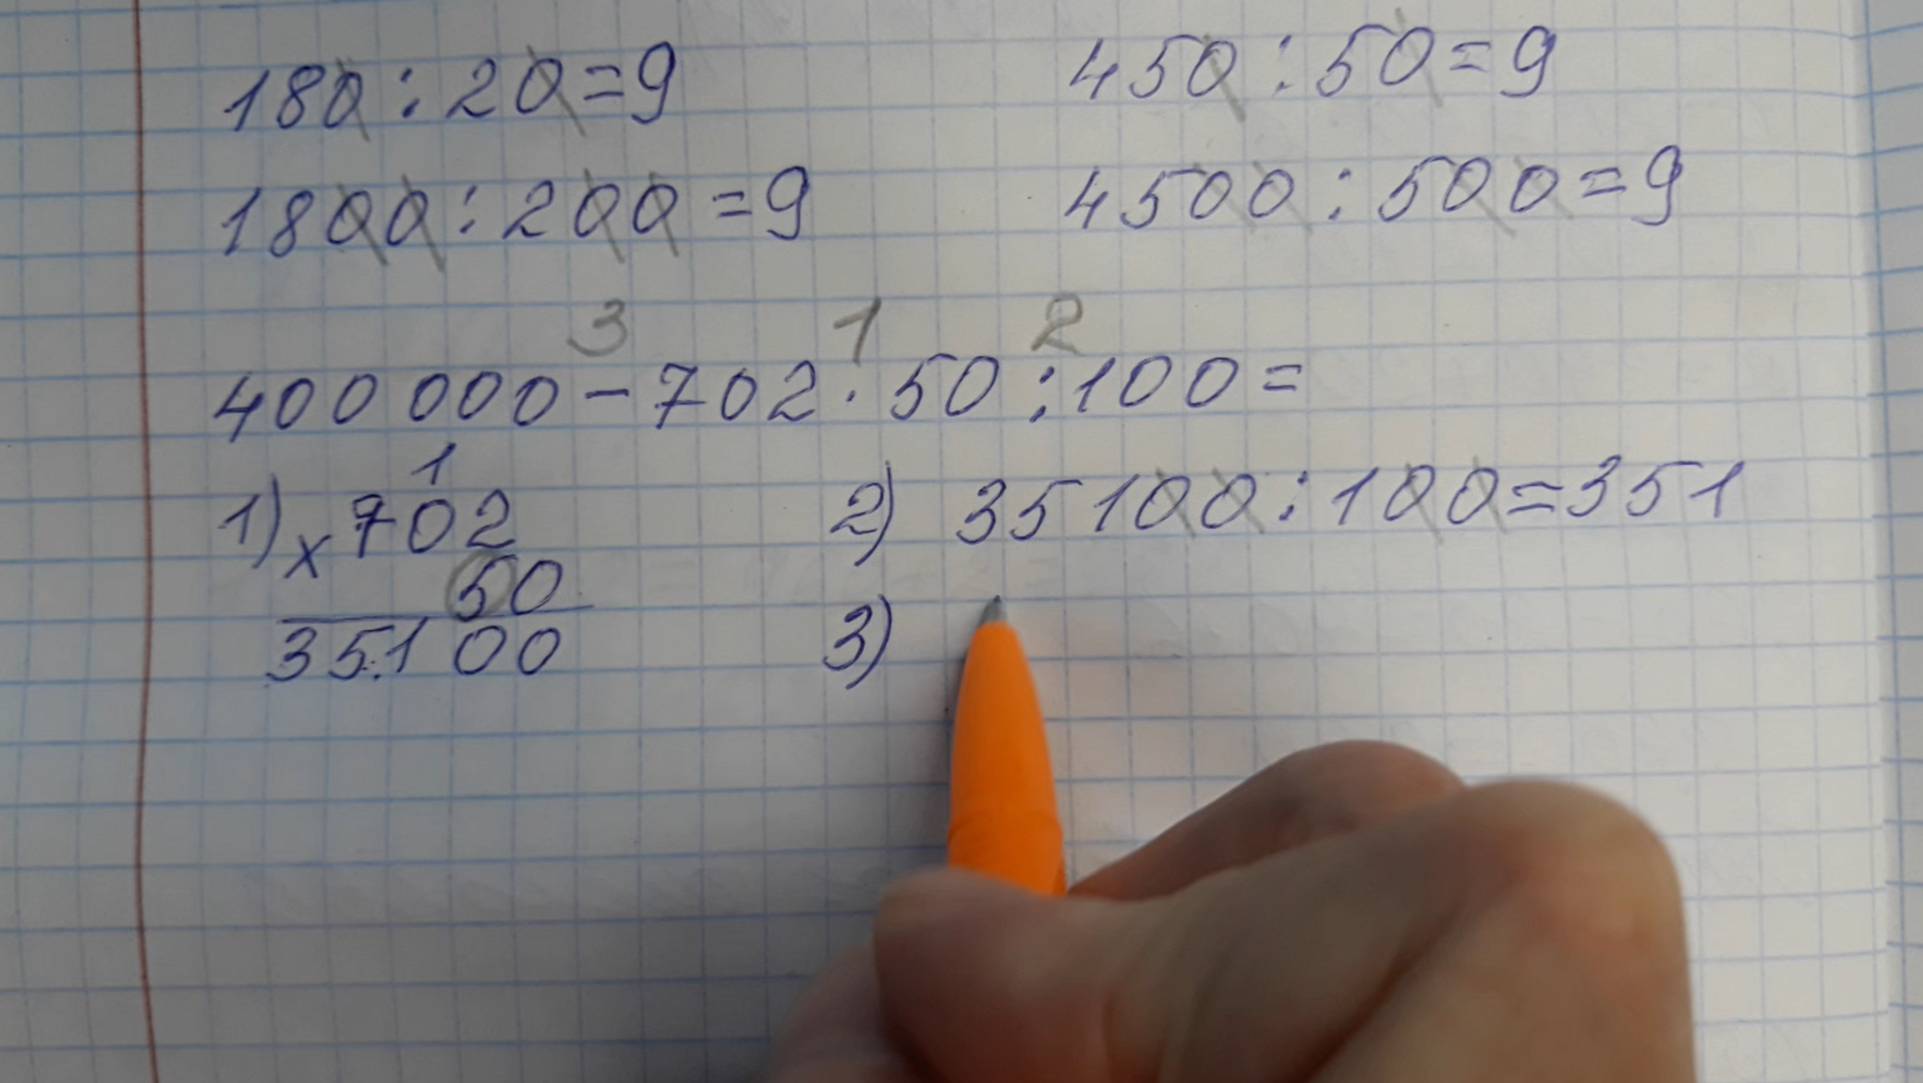 180 : 20 = 9
450 : 50 = 9
1800 : 200 = 9
4500 : 500 = 9
3 1 2
400 000 - 702 · 50 : 100 =
1
1) × 702
50
35100
2) 35100 : 100 = 351
3)